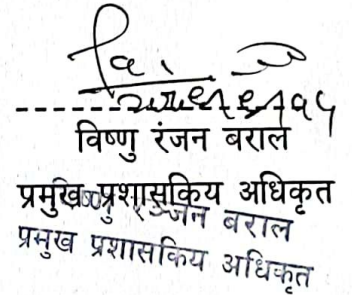 विष्णु रंजन बराल
प्रमुख प्रशासकिय अधिकृत
विष्णु रञ्जन बराल
प्रमुख प्रशासकिय अधिकृत